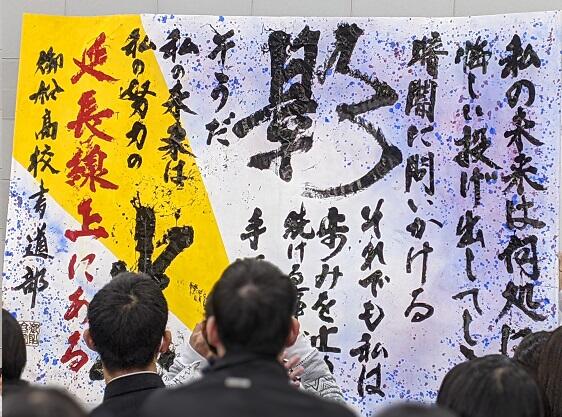 私の未来は何処に
悔しい投げ出してし
暗闇に問いかける
それでも私は
歩みを止
続ける
手
そうだ
私の未来は
私の努力の
延長線上にある
御船高校書道部